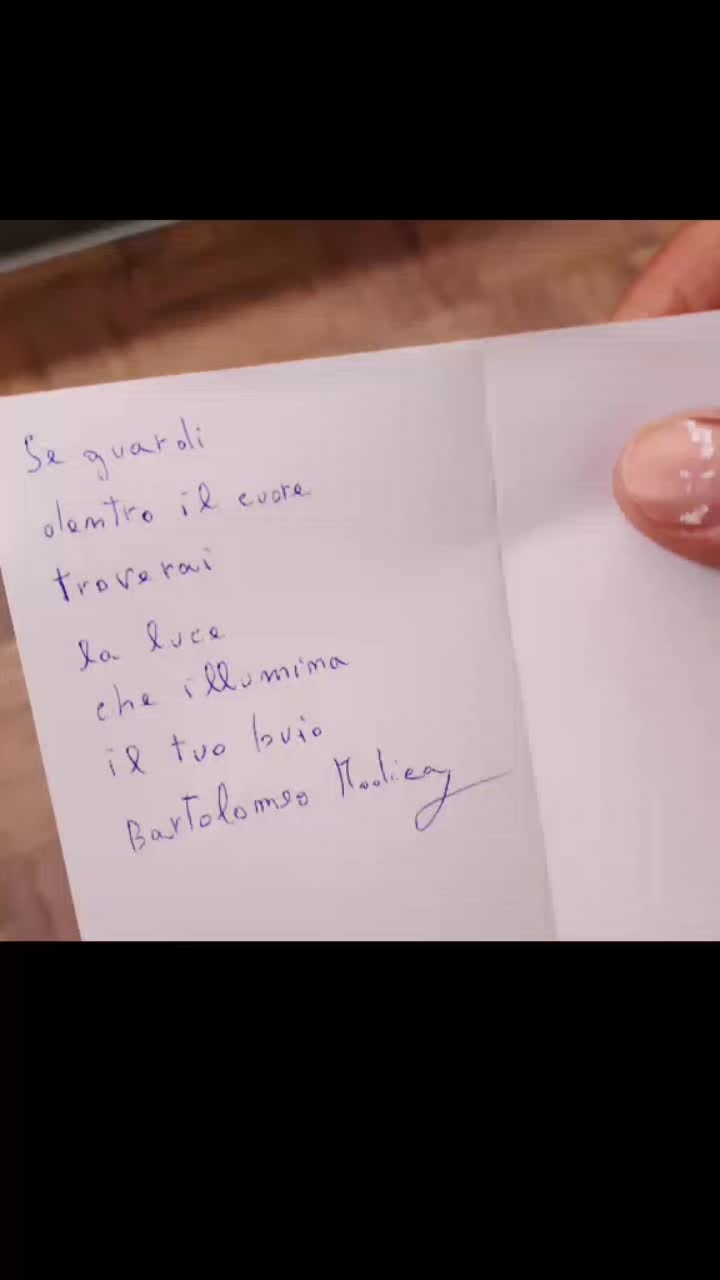 Se guardi
dentro il cuore
troverai
la luce
che illumina
il tuo buio
Bartolomeo Modica